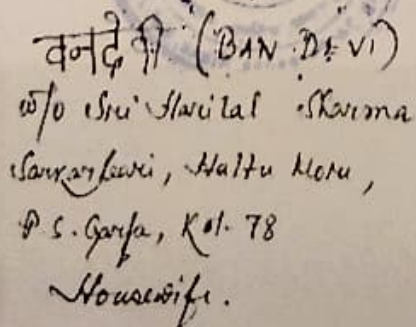 वनदेवी (BAN DEVI)
w/o Sri Harilal Sharma
Sarkarbari, Haltu More,
P.S. Garfa, Kol. 78
Housewife.